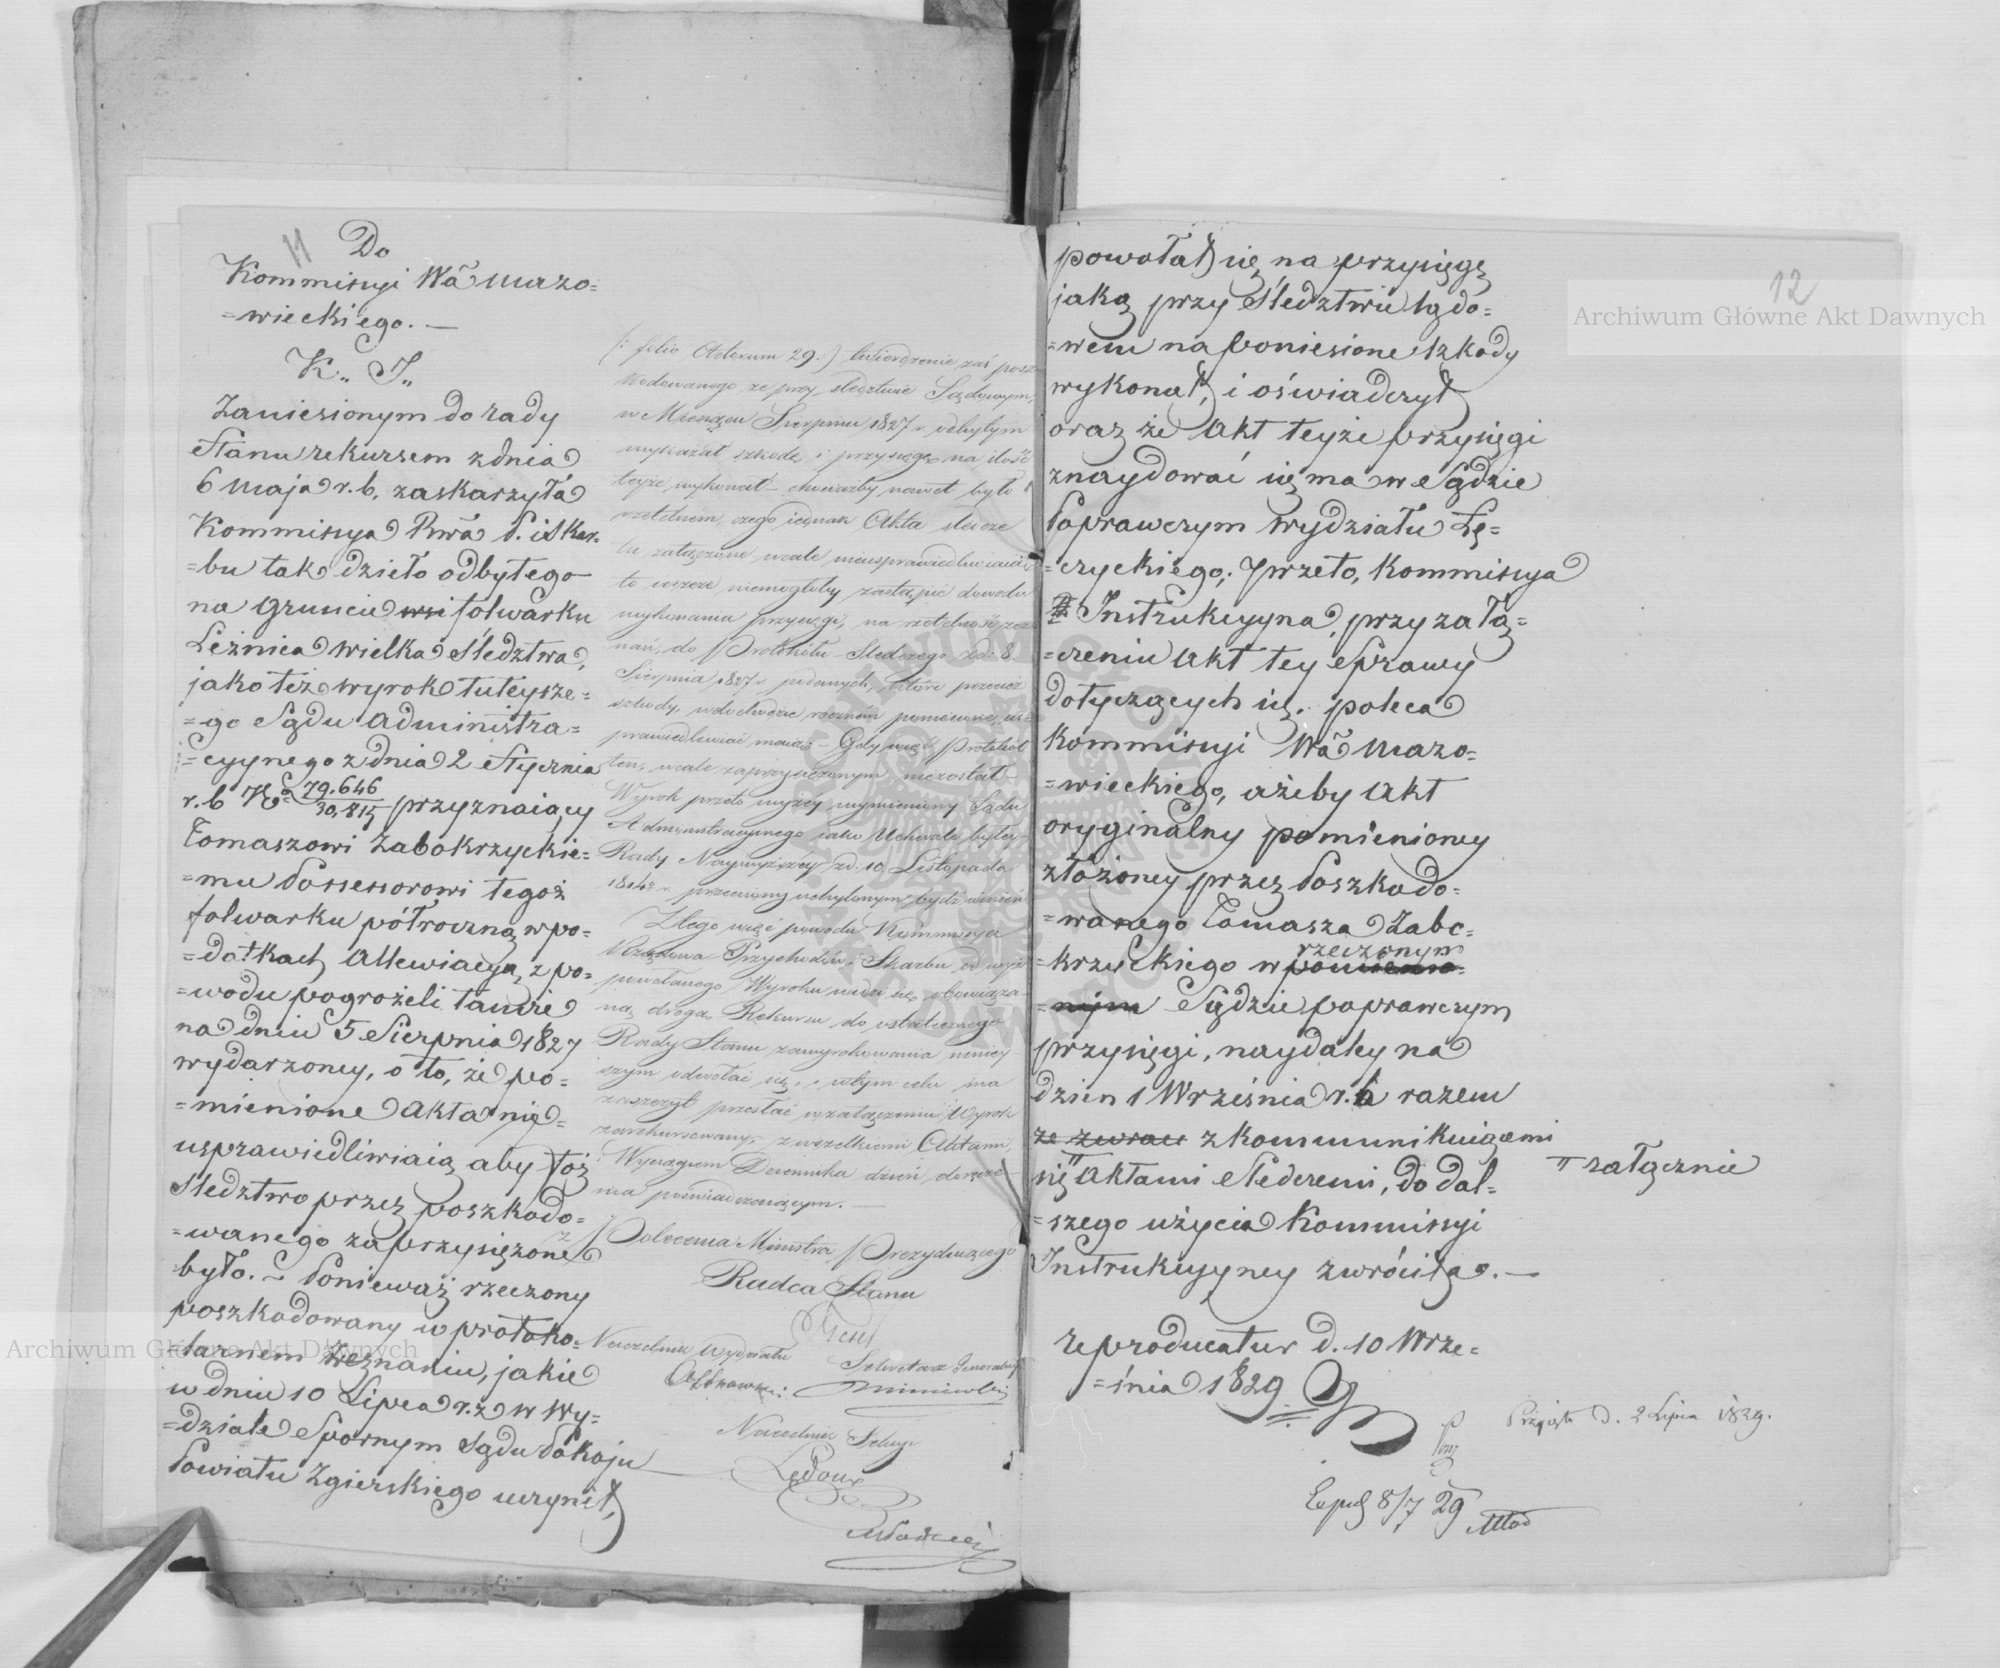 11
Do
Kommissyi Wa Mazo=
=wieckiego. —
K„ I„
Zaniesionym do rady
Stanu rekursem z dnia
6 Maja r. b. zaskarzyła
Kommissya Rwa P. i Skar=
=bu tak dzieło odbytego
na gruncie wsi folwarku
Leźnica Wielka Śledztwa,
jako też wyrok tuteysze=
=go Sądu Administra=
=cyynego z dnia 2 Stycznia
r. b. No 79.646/30,815 przyznaiący
Tomaszowi Zabokrzyckie=
=mu Possessorowi tegoż
folwarku półroczną w po=
=datkach Allewiacyą z po=
=wodu pogorzeli tamże
na dniu 5 Sierpnia 1827
wydarzoney, o to, że po=
=mienione Akta nie
usprawiedliwiaią aby toż
Śledztwo przez poszkodo=
=wanego zaprzysiężone
było. ~ Ponieważ rzeczony
poszkodowany w protoko=
=larnem zeznaniu, jakie
w dniu 10 Lipca r. z. w Wy=
=dziale Spornym Sądu Pokoju
Powiatu Zgierskiego uczynił,
(: folio Actorum 29 :) twierdzenie zaś posz
kodowanego ze przy śledztwie Sądowym,
w Miesiącu Sierpniu 1827 r. odbytym
wykazał szkodę i przysięgę na ilość
teyże wykonał – chociażby nawet było
rzetelnem, czego jednak Akta śledcze
tu załączone wcale nieusprawiedliwiaią
to wszczę niemogłoby zastąpić dowodu
wykonania przysięgi, na rzetelność zez
nań, do Protokółu Śledczego z d: 8.
Sierpnia 1827 r. podanych, które przecież
szkody, w dochodzie rocznim poniesione, us
prawiedliwiać maią – Gdy więc Protokół
ten, wcale zaprzysiężonym niezostał
Wyrok przeto wyżey wymieniony Sądu
Administracyinego iako Uchwale byłey
Rady Naywyższey z d. 10 Listopada
1814 r. przeciwny uchylonym bydź winien
Z tego więc powodu Kommissya
Rządowa Przychodów i Skarbu od wyż
powołanego Wyroku widzi się obowiąza
ną drogą Rekursu do ostatecznego
Rady Stanu zawyrokowania niniey
szym odwołać się, i w tym celu ma
zaszczyt przesłać w załączeniu Wyrok
zarekursowany, z wszelkiemi Aktami,
i Wyciągiem Dziennika dzień doręcze
nia poświadczaiącym. —
z Polecenia Ministra Prezyduiącego
Radca Stanu
Naczelnik Wydziału
Sekretarz Generalny
Naczelnik Sekcyi
Ledoux
12
powołał się na przysięgę
jaką przy Śledztwie Sądo=
=wem na poniesione szkody
wykonał, i oświadczył
oraz że Akt teyże przysięgi
znaydować się ma w Sądzie
Poprawczym Wydziału Łę=
=czyckiego; przeto, Kommissya
Instrukcyyna, przy załą=
=czeniu Akt tey Sprawy
dotyczących się, poleca
Kommissyi Wa Mazo=
=wieckiego, ażeby Akt
oryginalny pomienioney
złożoney przez Poszkodo=
=wanego Tomasza Zabo=
rzeczonym
=krzyckiego w pomienio=
=nym Sądzie poprawczym
przysięgi, naydaley na
dzień 1 Września r. b. razem
ze zwrac z kommunikuiącemi
się " Aktami Śledczemi, do dal=
" załącznie
=szego użycia Kommissyi
Instrukcyyney zwróciła. —
reproducatur d. 10 Wrze=
=śnia 1829
Przyięta d. 2 Lipca 1829.
Exped 8/7 29
Archiwum Główne Akt Dawnych
Archiwum Główne Akt Dawnych